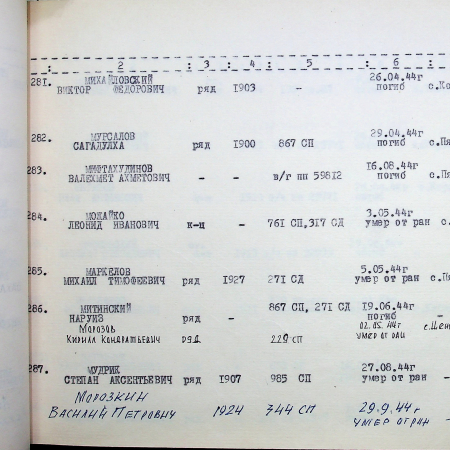 : 2 : 3 : 4 : 5 : 6 :
281. МИХАЙЛОВСКИЙ 26.04.44г
ВИКТОР ФЕДОРОВИЧ ряд 1903 - погиб
282. МУРСАЛОВ 29.04.44г
САГАДУЛХА ряд 1900 867 СП погиб
283. МИФТАХУДИНОВ 16.08.44г
ВАЛЕХМЕТ АХМЕТОВИЧ - - в/г пп 59812 погиб
284. МОЖАЙКО 3.05.44г
ЛЕОНИД ИВАНОВИЧ к-ц - 761 СП,317 СД умер от ран
285. МАРКЕЛОВ 5.05.44г
МИХАИЛ ТИМОФЕЕВИЧ ряд 1927 271 СД умер от ран
286. МИТИНСКИЙ 867 СП, 271 СД 19.06.44г
НАРУИЗ ряд - погиб -
Морозов 02.05.44г
Кирилл Кондратьевич ряд. 229 сп умер от ран
287. МУДРИК 27.08.44г
СТЕПАН АКСЕНТЬЕВИЧ ряд 1907 985 СП умер от ран -
Морозкин
Василий Петрович 1924 344 сп 29.9.44г
умер от ран -